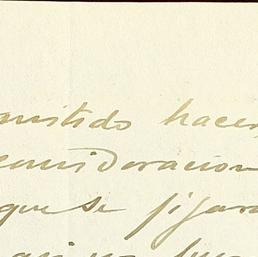 mitido hacer
consideracion
que se fijara